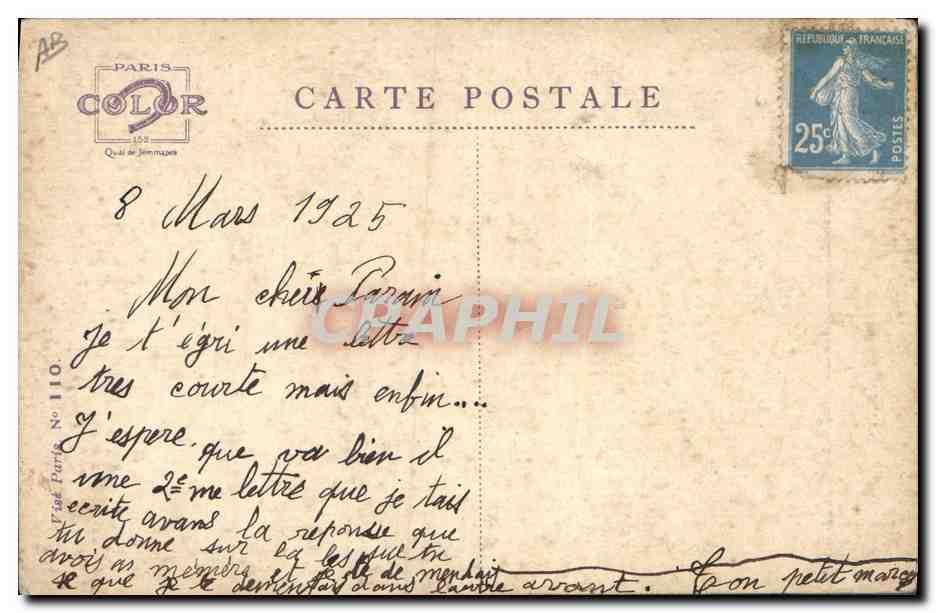 AB
PARIS
COLOR
152
Quai de Jemmapes
CARTE POSTALE
REPUBLIQUE FRANÇAISE
25c
POSTES
8 Mars 1925
Mon cheis Parain
je t'égri une lettre
tres courte mais enfin....
J'espere que va bien il
une 2eme lettre que je tais
ecrite avans la reponse que
tu donne sur la les que tu
avois as memère et je te de mendait
se que je te demendais dans l'autre avant. Ton petit marcel
Visé Paris No 110.
CPAPHIL